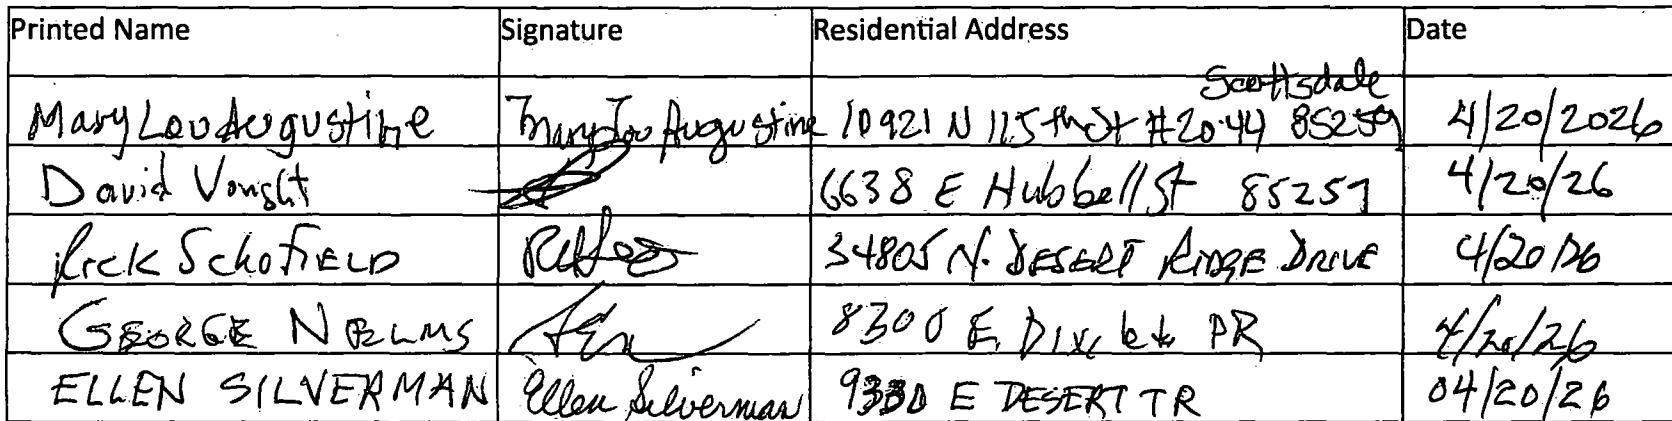 Printed Name Signature Residential Address Date
Scottsdale
Mary Lou Augustine Mary Lou Augustine 10921 N 115th St #2044 85259 4/20/2026
David Vonght 6638 E Hubbell St 85257 4/20/26
Rick Schofield 34805 N. DESERT RIDGE DRIVE 4/20/26
GEORGE NELMS 8300 E. DR 4/20/26
ELLEN SILVERMAN Ellen Silverman 9330 E DESERT TR 04/20/26